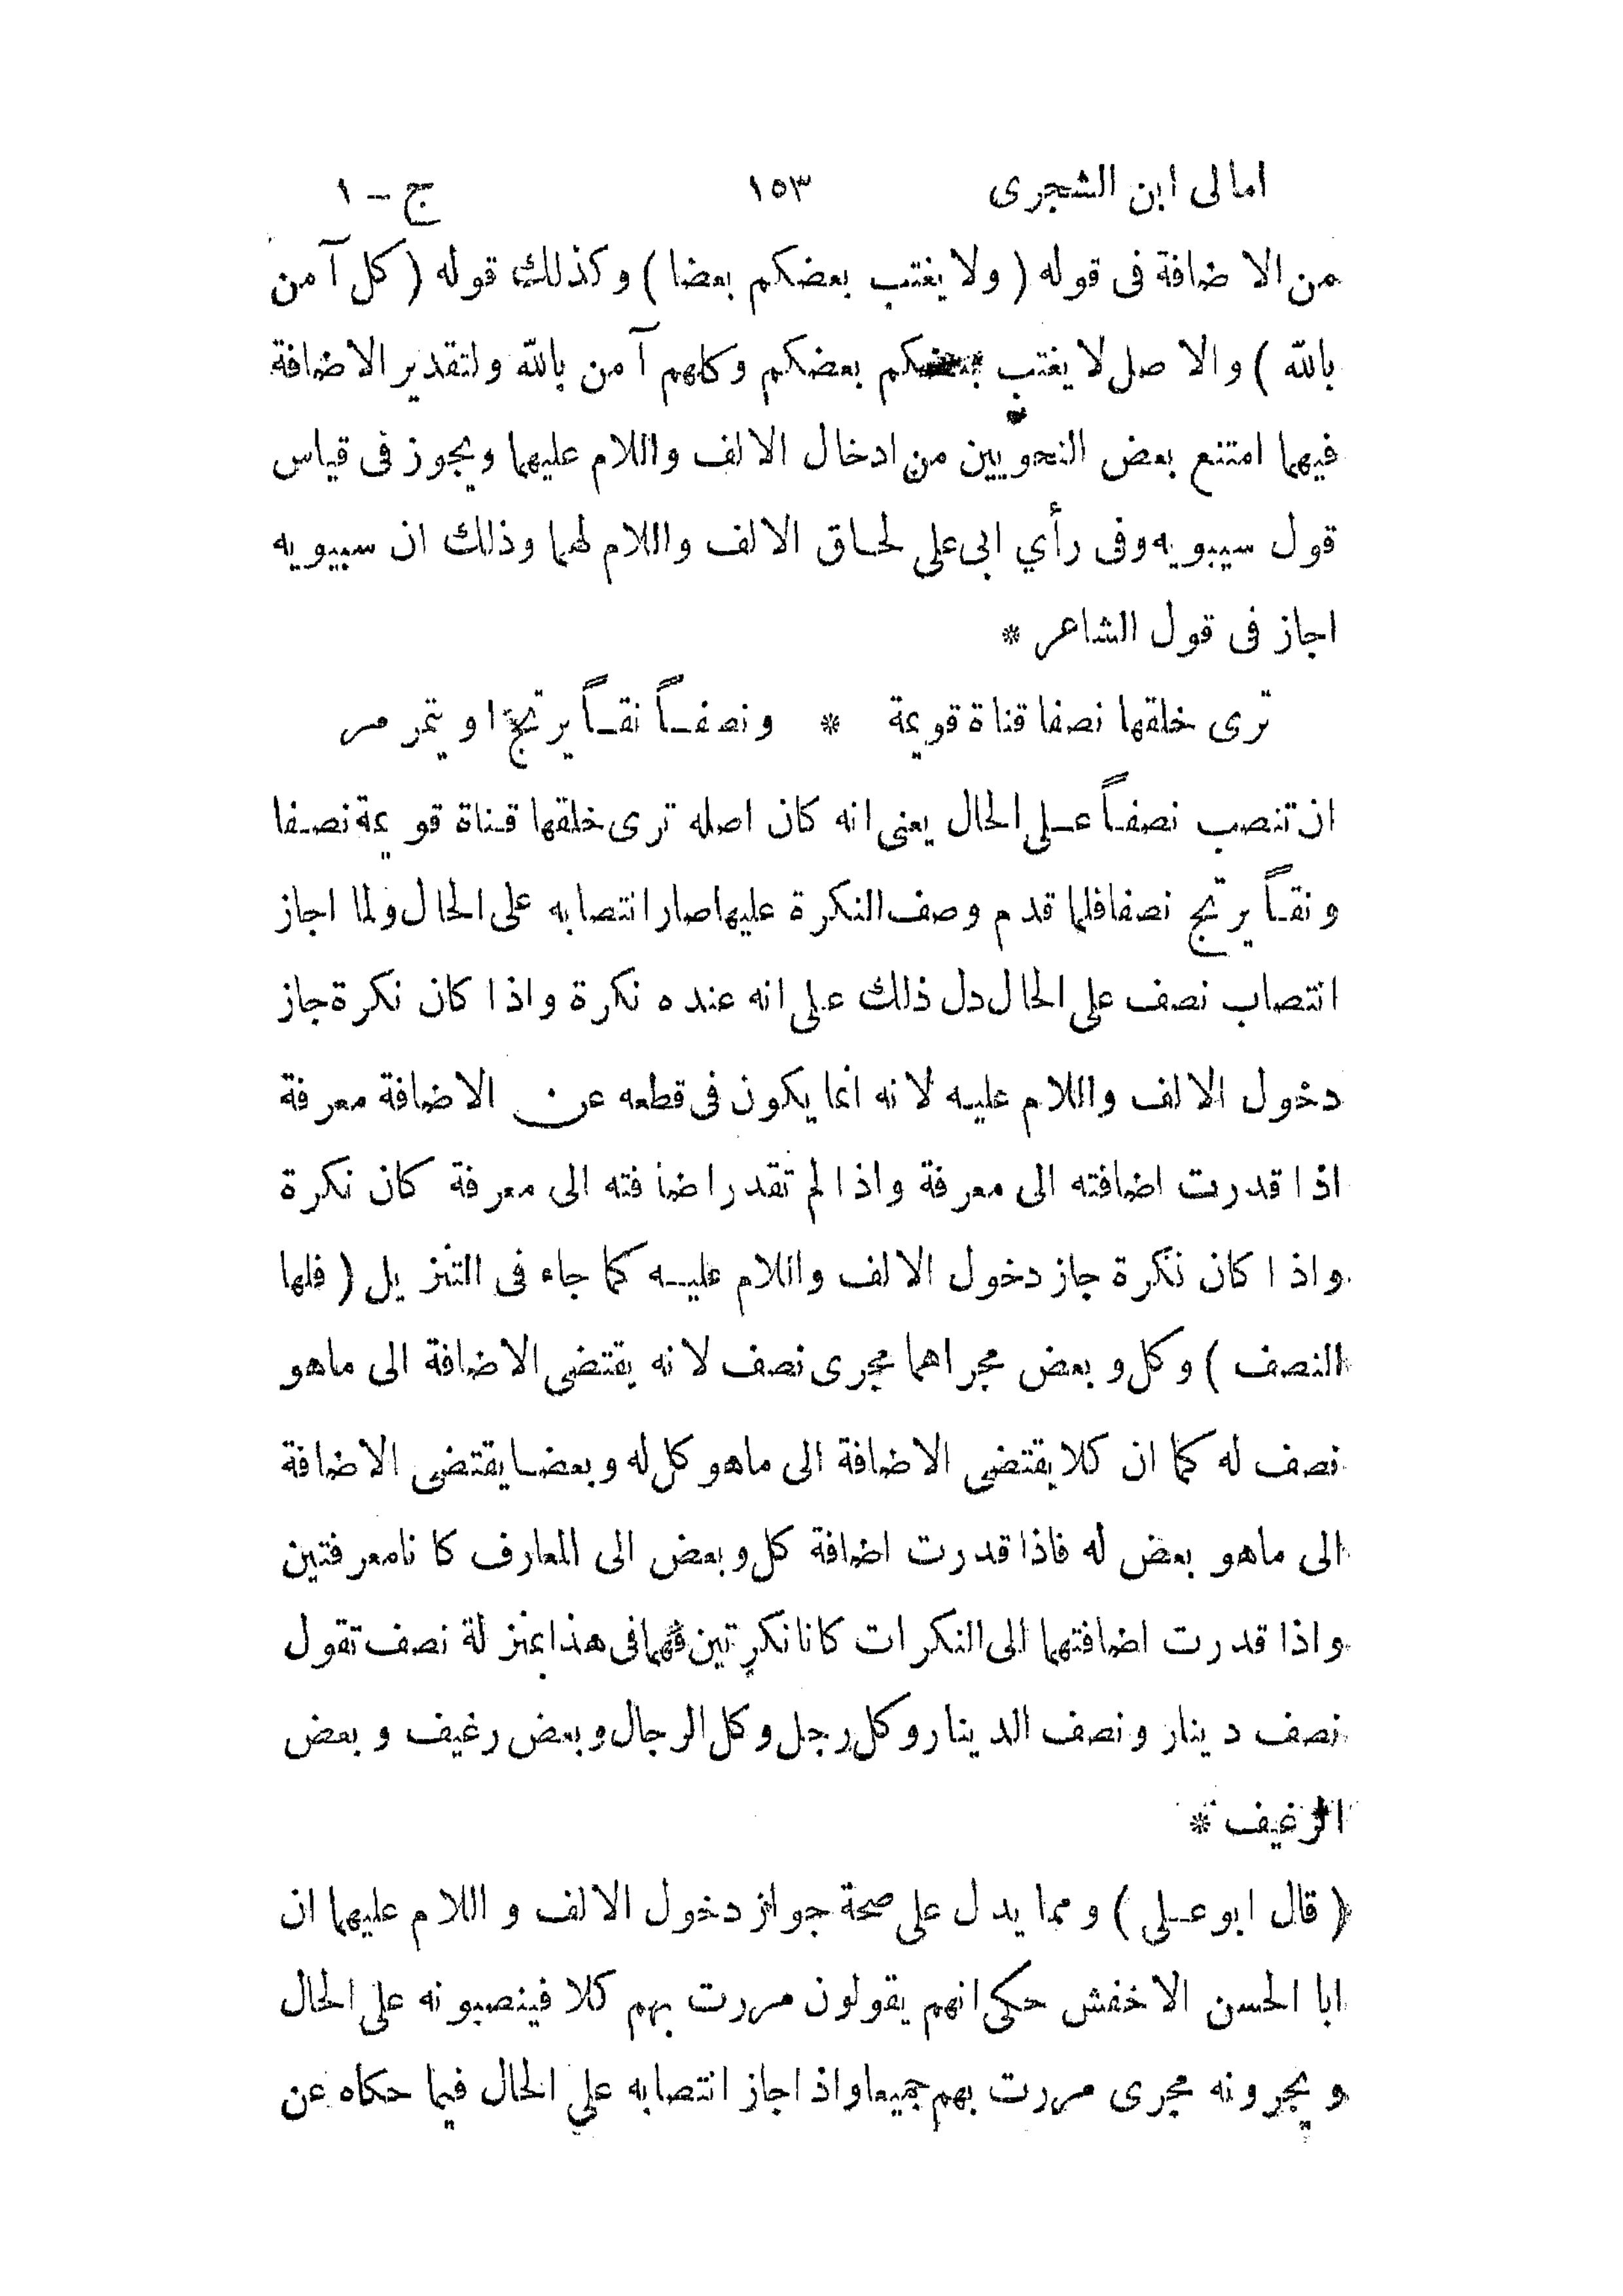 امالى ابن الشجرى ١٥٣ ج – ١
من الاضافة فى قوله ( ولا يغتب بعضكم بعضا ) وكذلك قوله ( كل آمن
بالله ) والاصل لا يغتب بعضكم بعضكم وكلهم آمن بالله ولتقدير الاضافة
فيهما امتنع بعض النحويين من ادخال الالف واللام عليهما ويجوز فى قياس
قول سيبويه وفى رأي ابى على لحاق الالف واللام لهما وذلك ان سيبويه
اجاز فى قول الشاعر *
ترى خلقها نصفا قناة قويمة * ونصفاً نقاً يرتج او يتمرمر
ان تنصب نصفاً على الحال يعنى انه كان اصله ترى خلقها قناة قويمة نصفا
ونقاً يرتج نصفا فلما قدم وصف النكرة عليها صار انتصابه على الحال ولما اجاز
انتصاب نصف على الحال دل ذلك على انه عنده نكرة واذا كان نكرة جاز
دخول الالف واللام عليه لانه انما يكون فى قطعه عن الاضافة معرفة
اذا قدرت اضافته الى معرفة واذا لم تقدر اضافته الى معرفة كان نكرة
واذا كان نكرة جاز دخول الالف واللام عليه كما جاء فى التنزيل ( فلها
النصف ) وكل وبعض مجراهما مجرى نصف لانه يقتضى الاضافة الى ماهو
نصف له كما ان كلا يقتضى الاضافة الى ماهو كل له وبعضا يقتضى الاضافة
الى ماهو بعض له فاذا قدرت اضافة كل وبعض الى المعارف كانا معرفتين
واذا قدرت اضافتهما الى النكرات كانا نكرتين فهما فى هذا بمنزلة نصف تقول
نصف دينار ونصف الدينار وكل رجل وكل الرجال وبعض رغيف وبعض
الرغيف *
( قال ابو على ) ومما يدل على صحة جواز دخول الالف واللام عليهما ان
ابا الحسن الاخفش حكى انهم يقولون مررت بهم كلا فينصبونه على الحال
ويجرونه مجرى مررت بهم جميعا واذا جاز انتصابه على الحال فيما حكاه عن